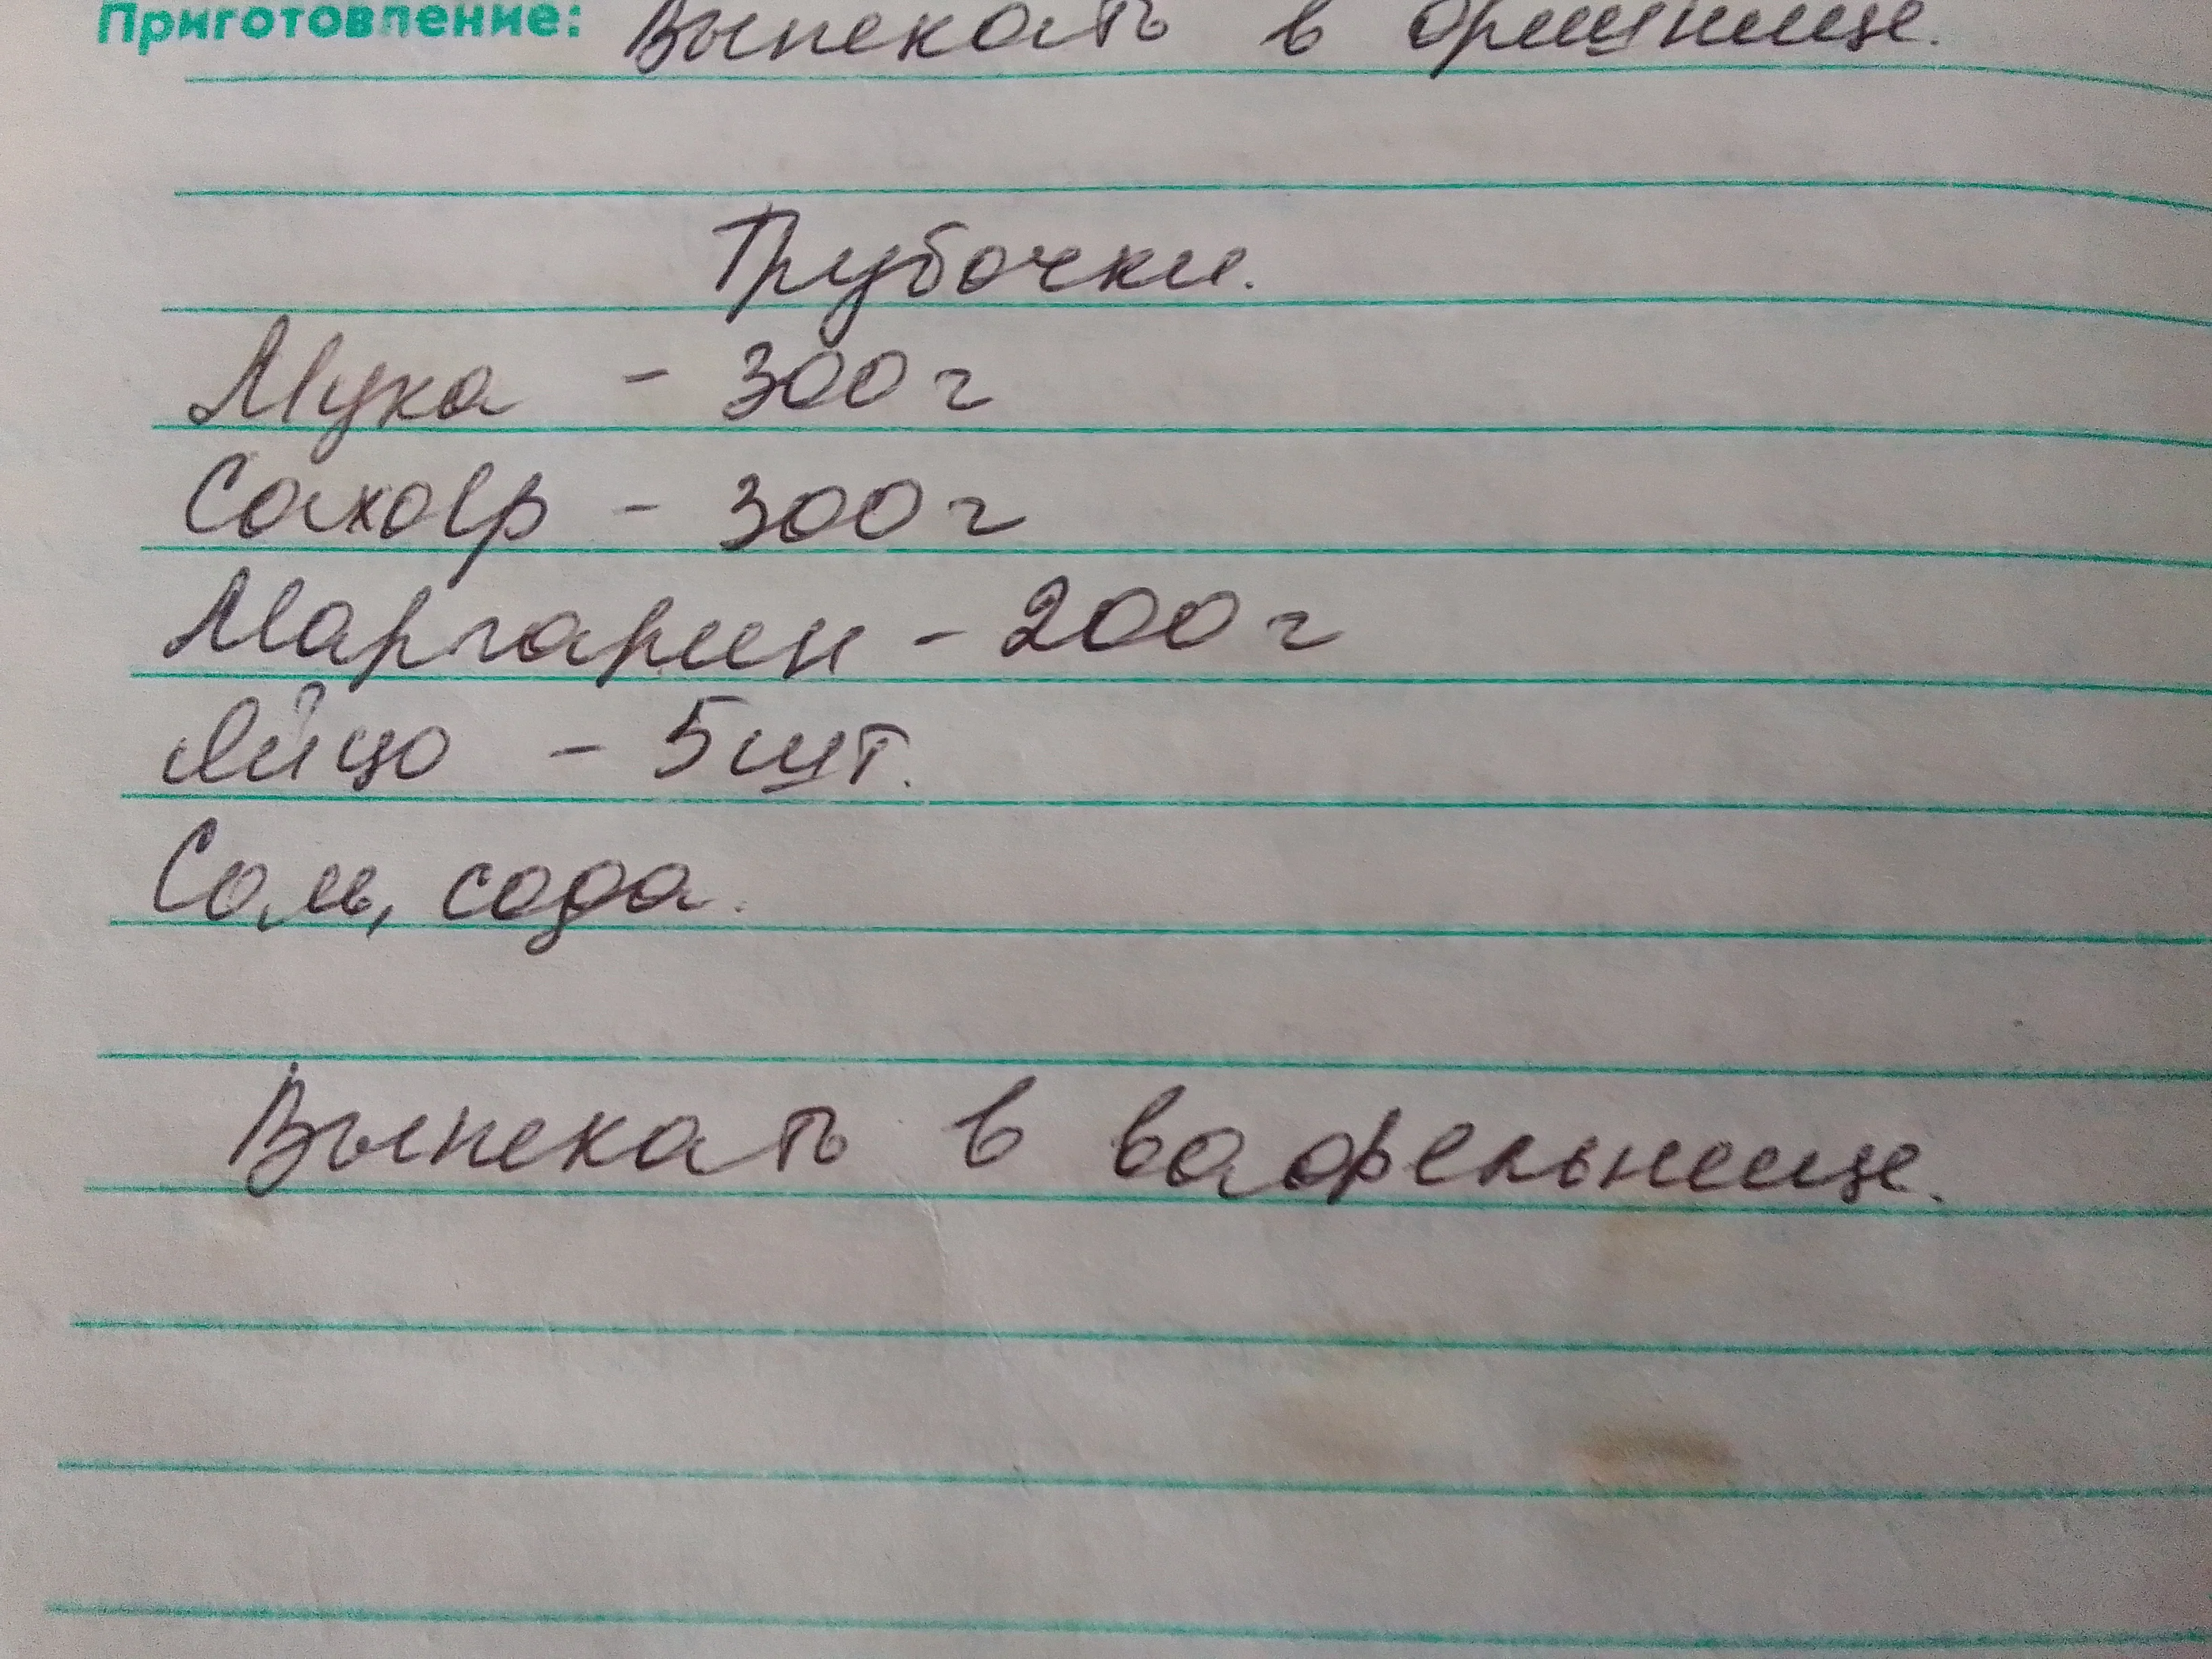 Приготовление: Выпекать в орешнице.
Трубочки.
Мука - 300 г
Сахар - 300 г
Маргарин - 200 г
Яйцо - 5 шт.
Соль, сода.
Выпекать в вафельнице.